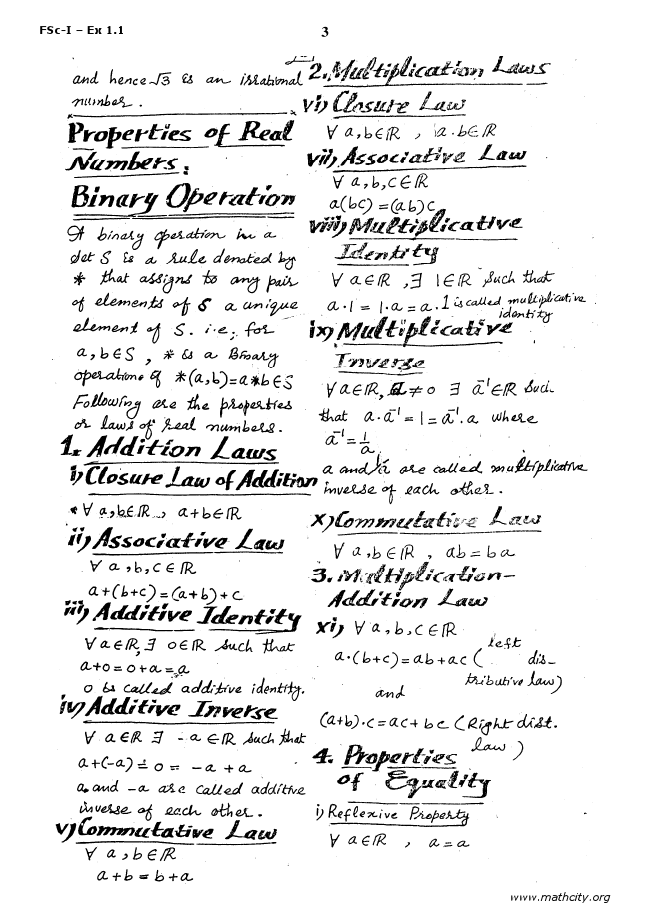 FSc-I – Ex 1.1
3
and hence √3 is an irrational
number.
Properties of Real
Numbers:
Binary Operation
A binary operation in a
set S is a rule denoted by
* that assigns to any pair
of elements of S a unique
element of S. i.e; for
a,b∈S, * is a Binary
operation if *(a,b)=a*b∈S
Following are the properties
or laws of real numbers.
1. Addition Laws
i) Closure Law of Addition
* ∀ a,b∈ℝ, a+b∈ℝ
ii) Associative Law
∀ a,b,c∈ℝ
a+(b+c)=(a+b)+c
iii) Additive Identity
∀ a∈ℝ,∃ 0∈ℝ such that
a+0=0+a=a
0 is called additive identity.
iv) Additive Inverse
∀ a∈ℝ ∃ -a∈ℝ such that
a+(-a)=0=-a+a
a and -a are called additive
inverse of each other.
v) Commutative Law
∀ a,b∈ℝ
a+b=b+a
2. Multiplication Laws
vi) Closure Law
∀ a,b∈ℝ, a.b∈ℝ
vii) Associative Law
∀ a,b,c∈ℝ
a(bc)=(ab)c
viii) Multiplicative
Identity
∀ a∈ℝ,∃ 1∈ℝ such that
a.1=1.a=a. 1 is called multiplicative
identity
ix) Multiplicative
Inverse
∀ a∈ℝ, a≠0 ∃ a⁻¹∈ℝ such
that a.a⁻¹=1=a⁻¹.a where
a⁻¹=1/a
a and 1/a are called multiplicative
inverse of each other.
x) Commutative Law
∀ a,b∈ℝ, ab=ba
3. Multiplication-
Addition Law
xi) ∀ a,b,c∈ℝ
a.(b+c)=ab+ac (left dis-
tributive law)
and
(a+b).c=ac+bc (Right dist.
law)
4. Properties
of Equality
i) Reflexive Property
∀ a∈ℝ, a=a
www.mathcity.org